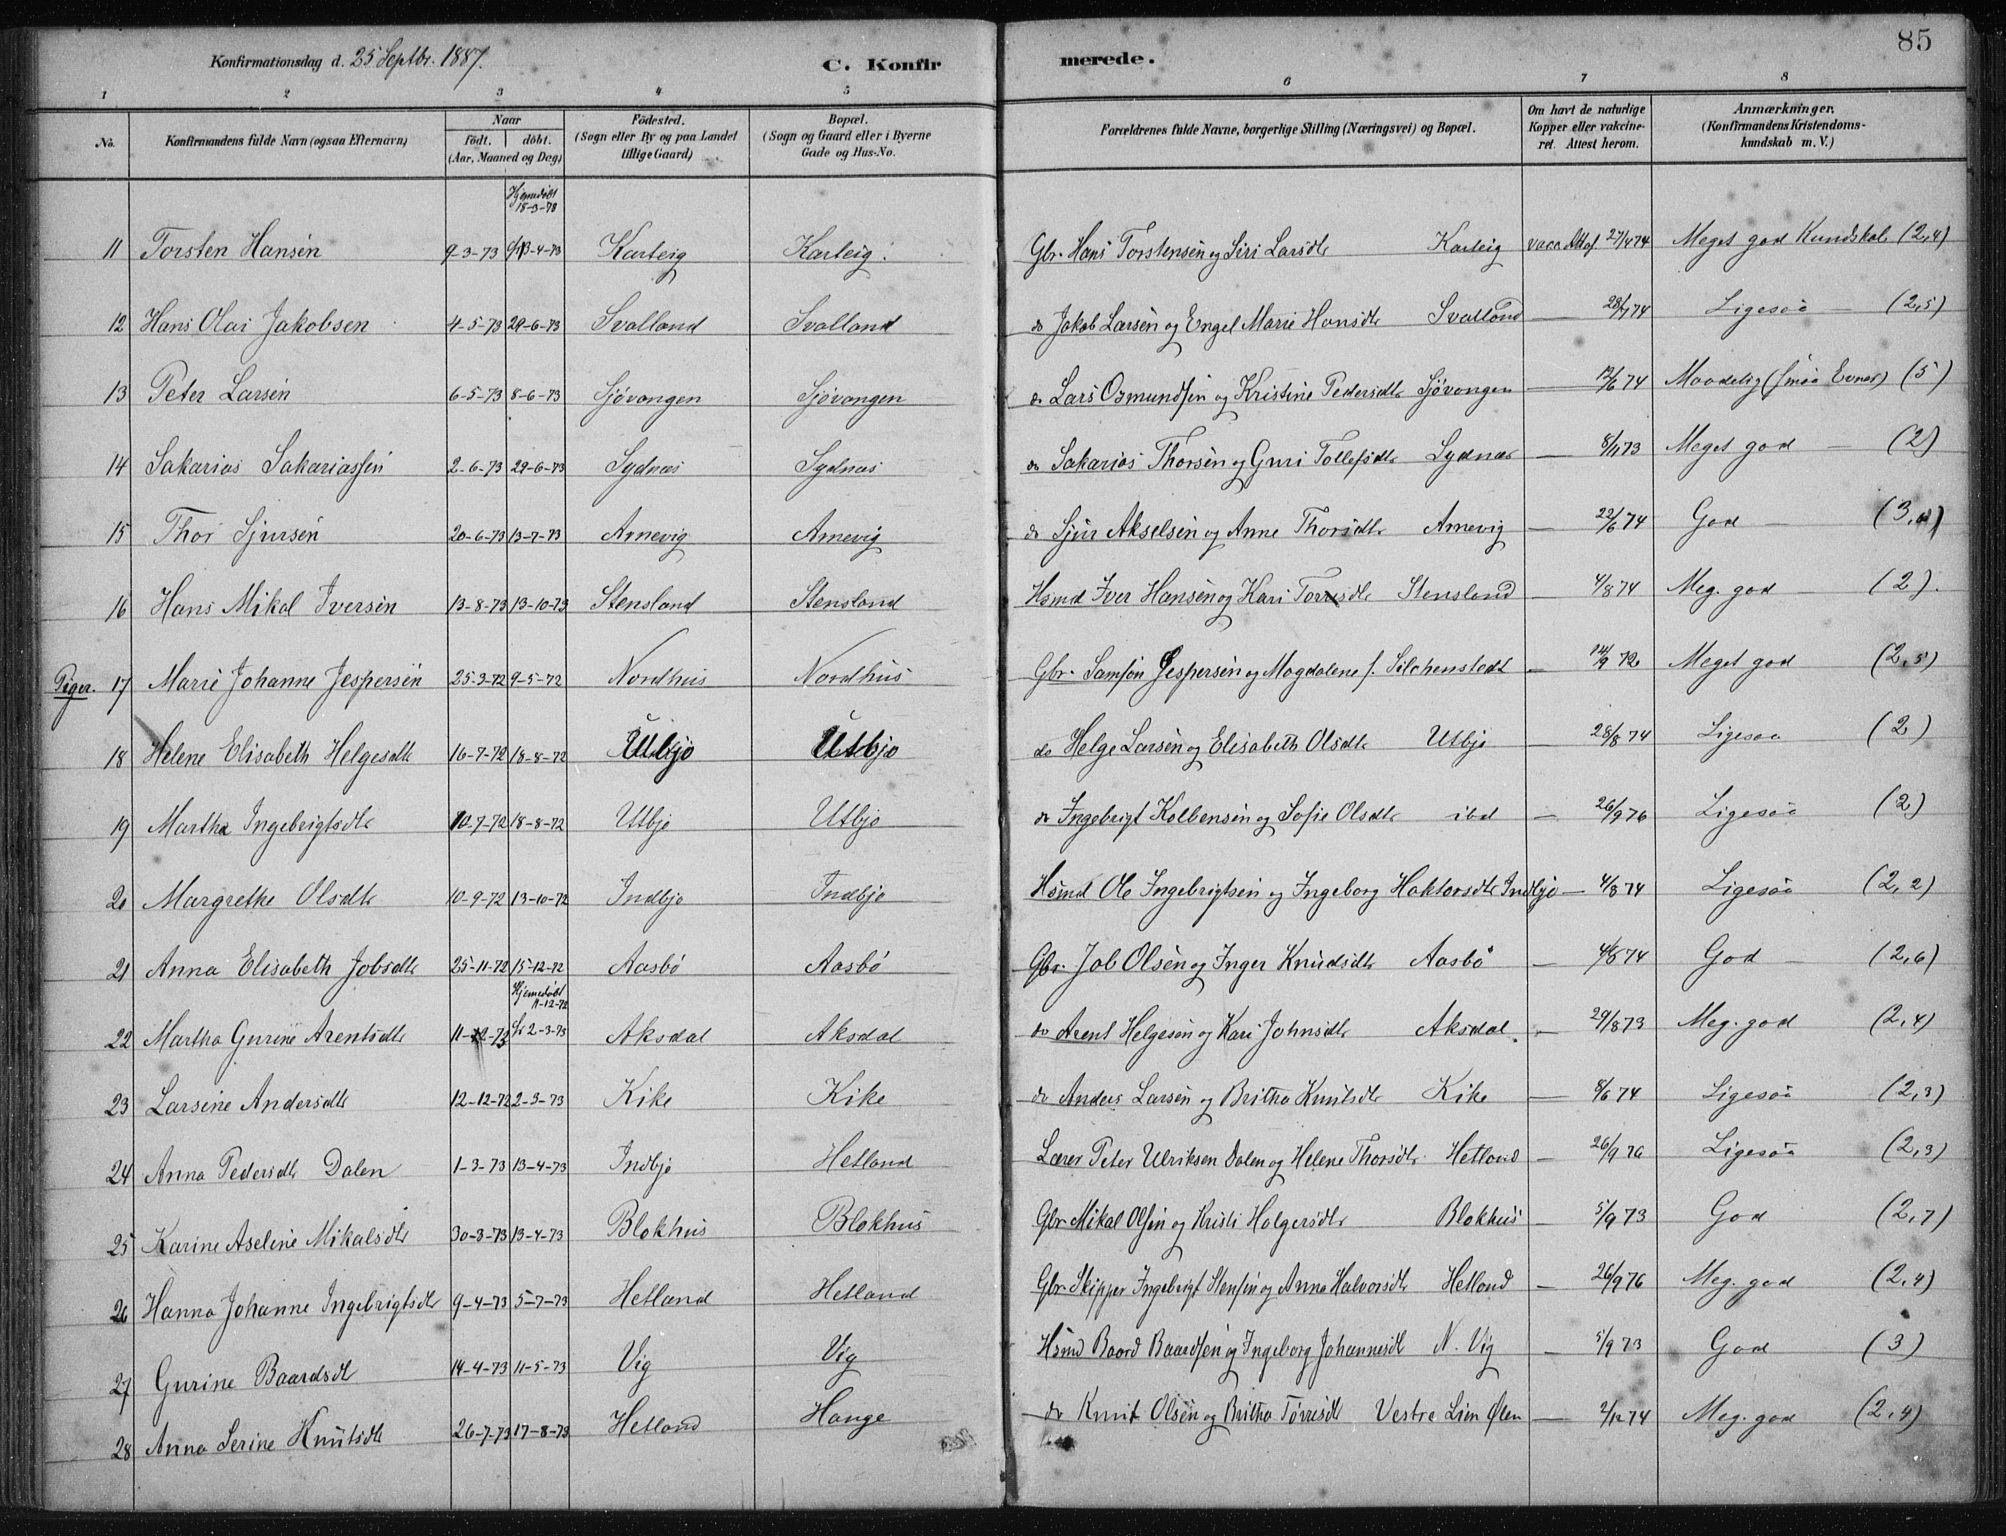 85
Konfirmationsdag d. 25 Septbr. 1887.
C. Konfirmerede.
1 2 3 4 5 6 7 8
No. | Konfirmandens fulde Navn (ogsaa Efternavn) | Naar født. døbt. (Aar, Maaned og Dag) | Fødested. (Sogn eller By og paa Landet tillige Gaard) | Bopæl. (Sogn og Gaard eller i Byerne Gade og Hus-No. | Forældrenes fulde Navne, borgerlige Stilling (Næringsvei) og Bopæl. | Om havt de naturlige Kopper eller vakcineret. Attest herom. | Anmærkninger. (Konfirmandens Kristendomskundskab m. V.)
Hjemedøbt 18-3-73
11 Torsten Hansen 9-3-73 13-4-73 Karteig Karteig. Gbr. Hans Torstensen og Siri Larsdtr Karteig vacc. Att af 27/4 74 Meget god Kundskab (2,4)
12 Hans Olai Jakobsen 4-5-73 29-6-73 Svalland Svalland do Jakob Larsen og Engel Marie Hansdtr Svalland — 28/7 74 Ligesaa — (2,5)
13 Peter Larsen 6-5-73 8-6-73 Sjövangen Sjövangen do Lars Osmundsen og Kristine Pedersdtr Sjövangen — 12/6 74 Maadelig (smaa Evner) (5)
14 Sakarias Sakariassen 2-6-73 29-6-73 Sydnæs Sydnæs do Sakarias Thorsen og Guri Tollefsdtr Sydnæs — 8/1 73 Meget god — (2)
15 Thor Sjursen 20-6-73 13-7-73 Arnevig Arnevig do Sjur Akselsen og Anne Thorsdtr Arnevig — 22/6 74 God — (3,4)
16 Hans Mikal Iversen 13-8-73 13-10-73 Stensland Stensland Hsmd Iver Hansen og Kari Torresdtr Stensland — 4/8 74 Meg. god — (2).
Piger. 17 Marie Johanne Jespersen 25-3-72 9-5-72 Nordhus Nordhus Gbr. Samson Jespersen og Magdalene f. Silchenstedt — 14/9 72 Meget god (2,5)
18 Helene Elisabeth Helgesdtr 16-7-72 18-8-72 Utbjo Utbjo do Helge Larsen og Elisabeth Olsdtr Utbjo — 28/8 74 Ligesaa (2)
19 Martha Ingebrigtsdtr 10-7-72 18-8-72 Utbjo Utbjo do Ingebrigt Kolbensen og Sofie Olsdtr ibd — 26/9 76 Ligesaa (2)
20 Margrethe Olsdtr 10-9-72 13-10-72 Indbjo Indbjo Hsmd Ole Ingebrigtsen og Ingeborg Haktorsdtr Indbjo — 4/8 74 Ligesaa (2,2)
21 Anna Elisabeth Jobsdtr 25-11-72 15-12-72 Aasbø Aasbø Gbr. Job Olsen og Inger Knudsdtr Aasbø — 4/8 74 God — (2,6)
Hjemedøbt 11-12-72
22 Martha Gurine Arentsdtr 11-12-72 2-3-73 Aksdal Aksdal do Arent Helgesen og Kari Johnsdtr Aksdal — 29/8 73 Meg. god (2,4)
23 Larsine Andersdtr 12-12-72 2-3-73 Kike Kike do Anders Larsen og Britha Knutsdtr Kike — 8/6 74 Ligesaa (2,3)
24 Anna Pedersdtr Dalen 1-3-73 13-4-73 Indbjo Hetland Lærer Peter Ulriksen Dalen og Helene Thorsdtr Hetland — 26/9 76 Ligesaa (2,3)
25 Karine Aseline Mikalsdtr 30-3-73 13-4-73 Blokhus Blokhus Gbr Mikal Olsen og Kristi Holgersdtr Blokhus — 5/9 73 God (2,7)
26 Hanna Johanne Ingebrigtsdtr 9-4-73 5-7-73 Hetland Hetland Gbr. Skipper Ingebrigt Stensen og Anna Halvorsdtr Hetland — 26/9 76 Meg. god (2,4)
27 Gurine Baardsdtr 14-4-73 11-5-73 Vig Vig Hsmd Baard Baardsen og Ingeborg Johannesdtr N. Vig — 5/9 73 God (3)
28 Anna Serine Knutsdtr 26-7-73 17-8-73 Hetland Hauge do Knut Olsen og Britha Tørresdtr Vestre Lien Ølen — 2/12 74 Meg. god (2,4)